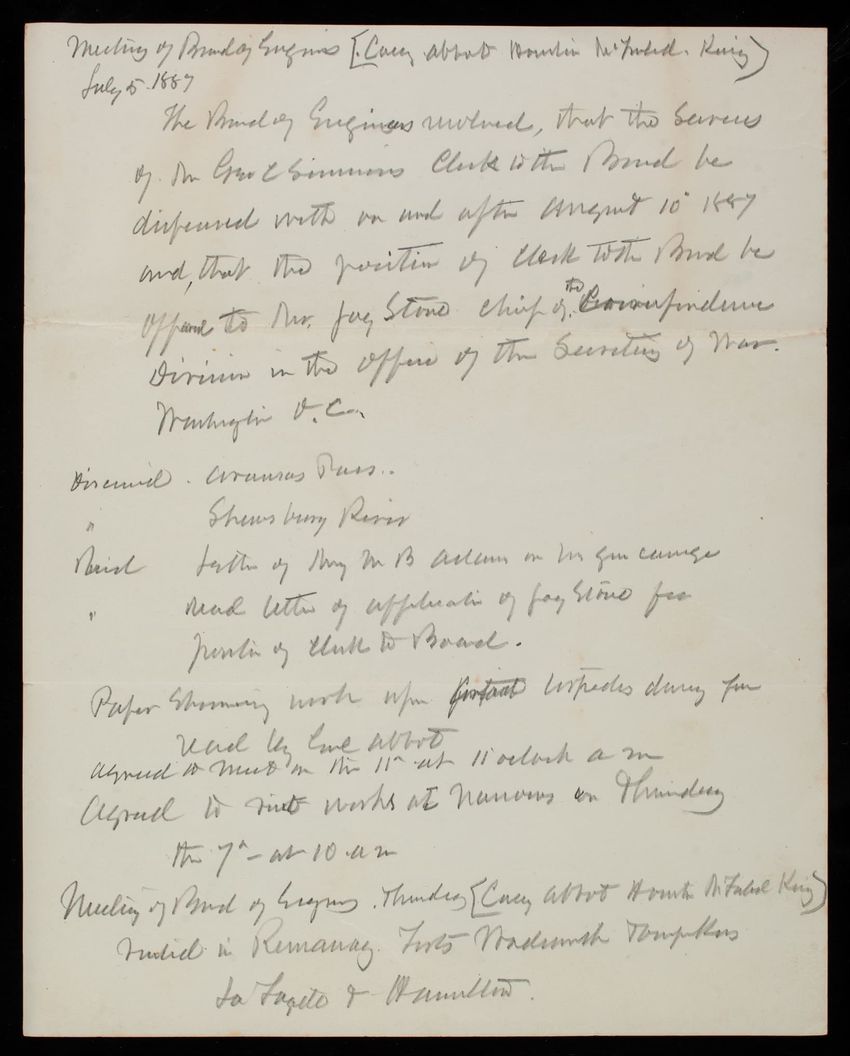 Meeting of Board of Engineers [Casey Abbot Houston McFarland King]
July 5 1887
The Board of Engineers resolved, that the Services
of Mr Geo C Simmons Clerk to the Board be
dispensed with on and after August 10" 1887
and, that the position of Clerk to the Board be
offered to Mr. Jay Stone Chief of the Correspondence
Division in the Office of the Secretary of War.
Washington D.C.
Discussed. Aransas Pass..
" Shrewsbury River
Read letter of M B Adams on his gun carriage
" read letter of application of Jay Stone for
position of Clerk to Board.
Paper Showing work upon torpedoes during
read by Genl Abbot
agreed to meet on the 11" at 11 oclock a m
Agreed to visit works at Narrows on Thursday
the 7" - at 10 a m
Meeting of Board of Engineers. Thursday [Casey Abbot Houston McFarland King]
visited in Forts Wadsworth Tompkins
La Fayette & Hamilton.